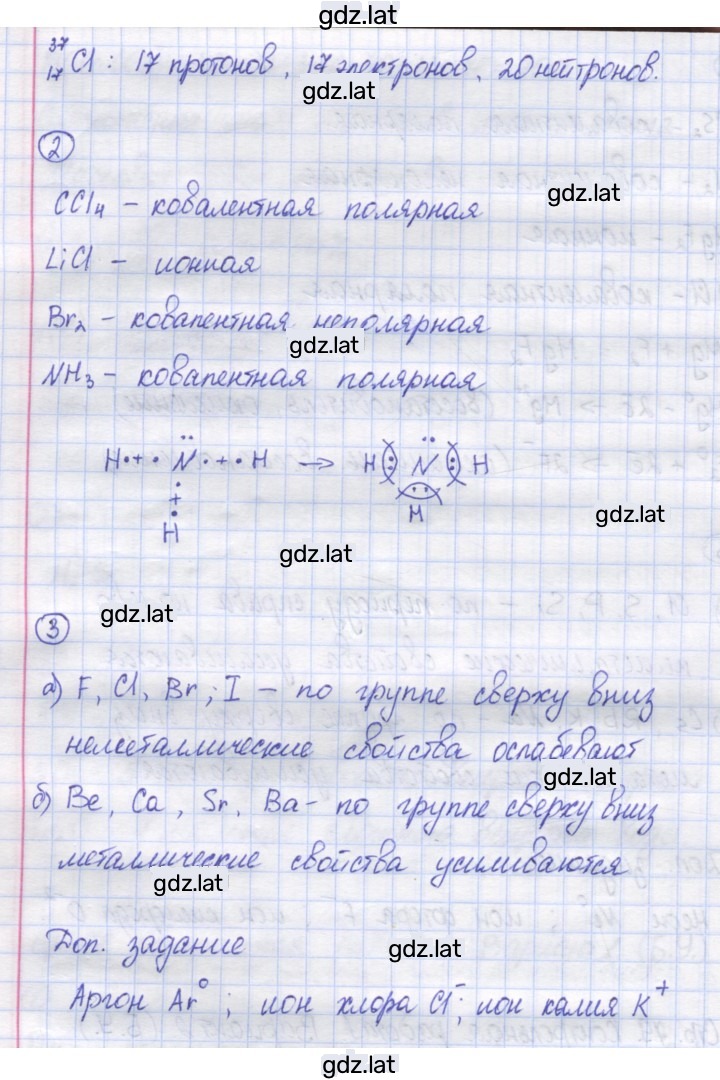 gdz.lat
³⁷₁₇Cl : 17 протонов, 17 электронов, 20 нейтронов.
gdz.lat
2
gdz.lat
CCl₄ – ковалентная полярная
LiCl – ионная
Br₂ – ковалентная неполярная
gdz.lat
NH₃ – ковалентная полярная
H·+· N̈ ·+·H → H(:N̈:)H
·
+
·
H
H
gdz.lat
gdz.lat
gdz.lat
3
а) F, Cl, Br, I – по группе сверху вниз
неметаллические свойства ослабевают
gdz.lat
б) Be, Ca, Sr, Ba – по группе сверху вниз
металлические свойства усиливаются
gdz.lat
Доп. задание
gdz.lat
Аргон Ar⁰ ; ион хлора Cl⁻; ион калия K⁺
gdz.lat